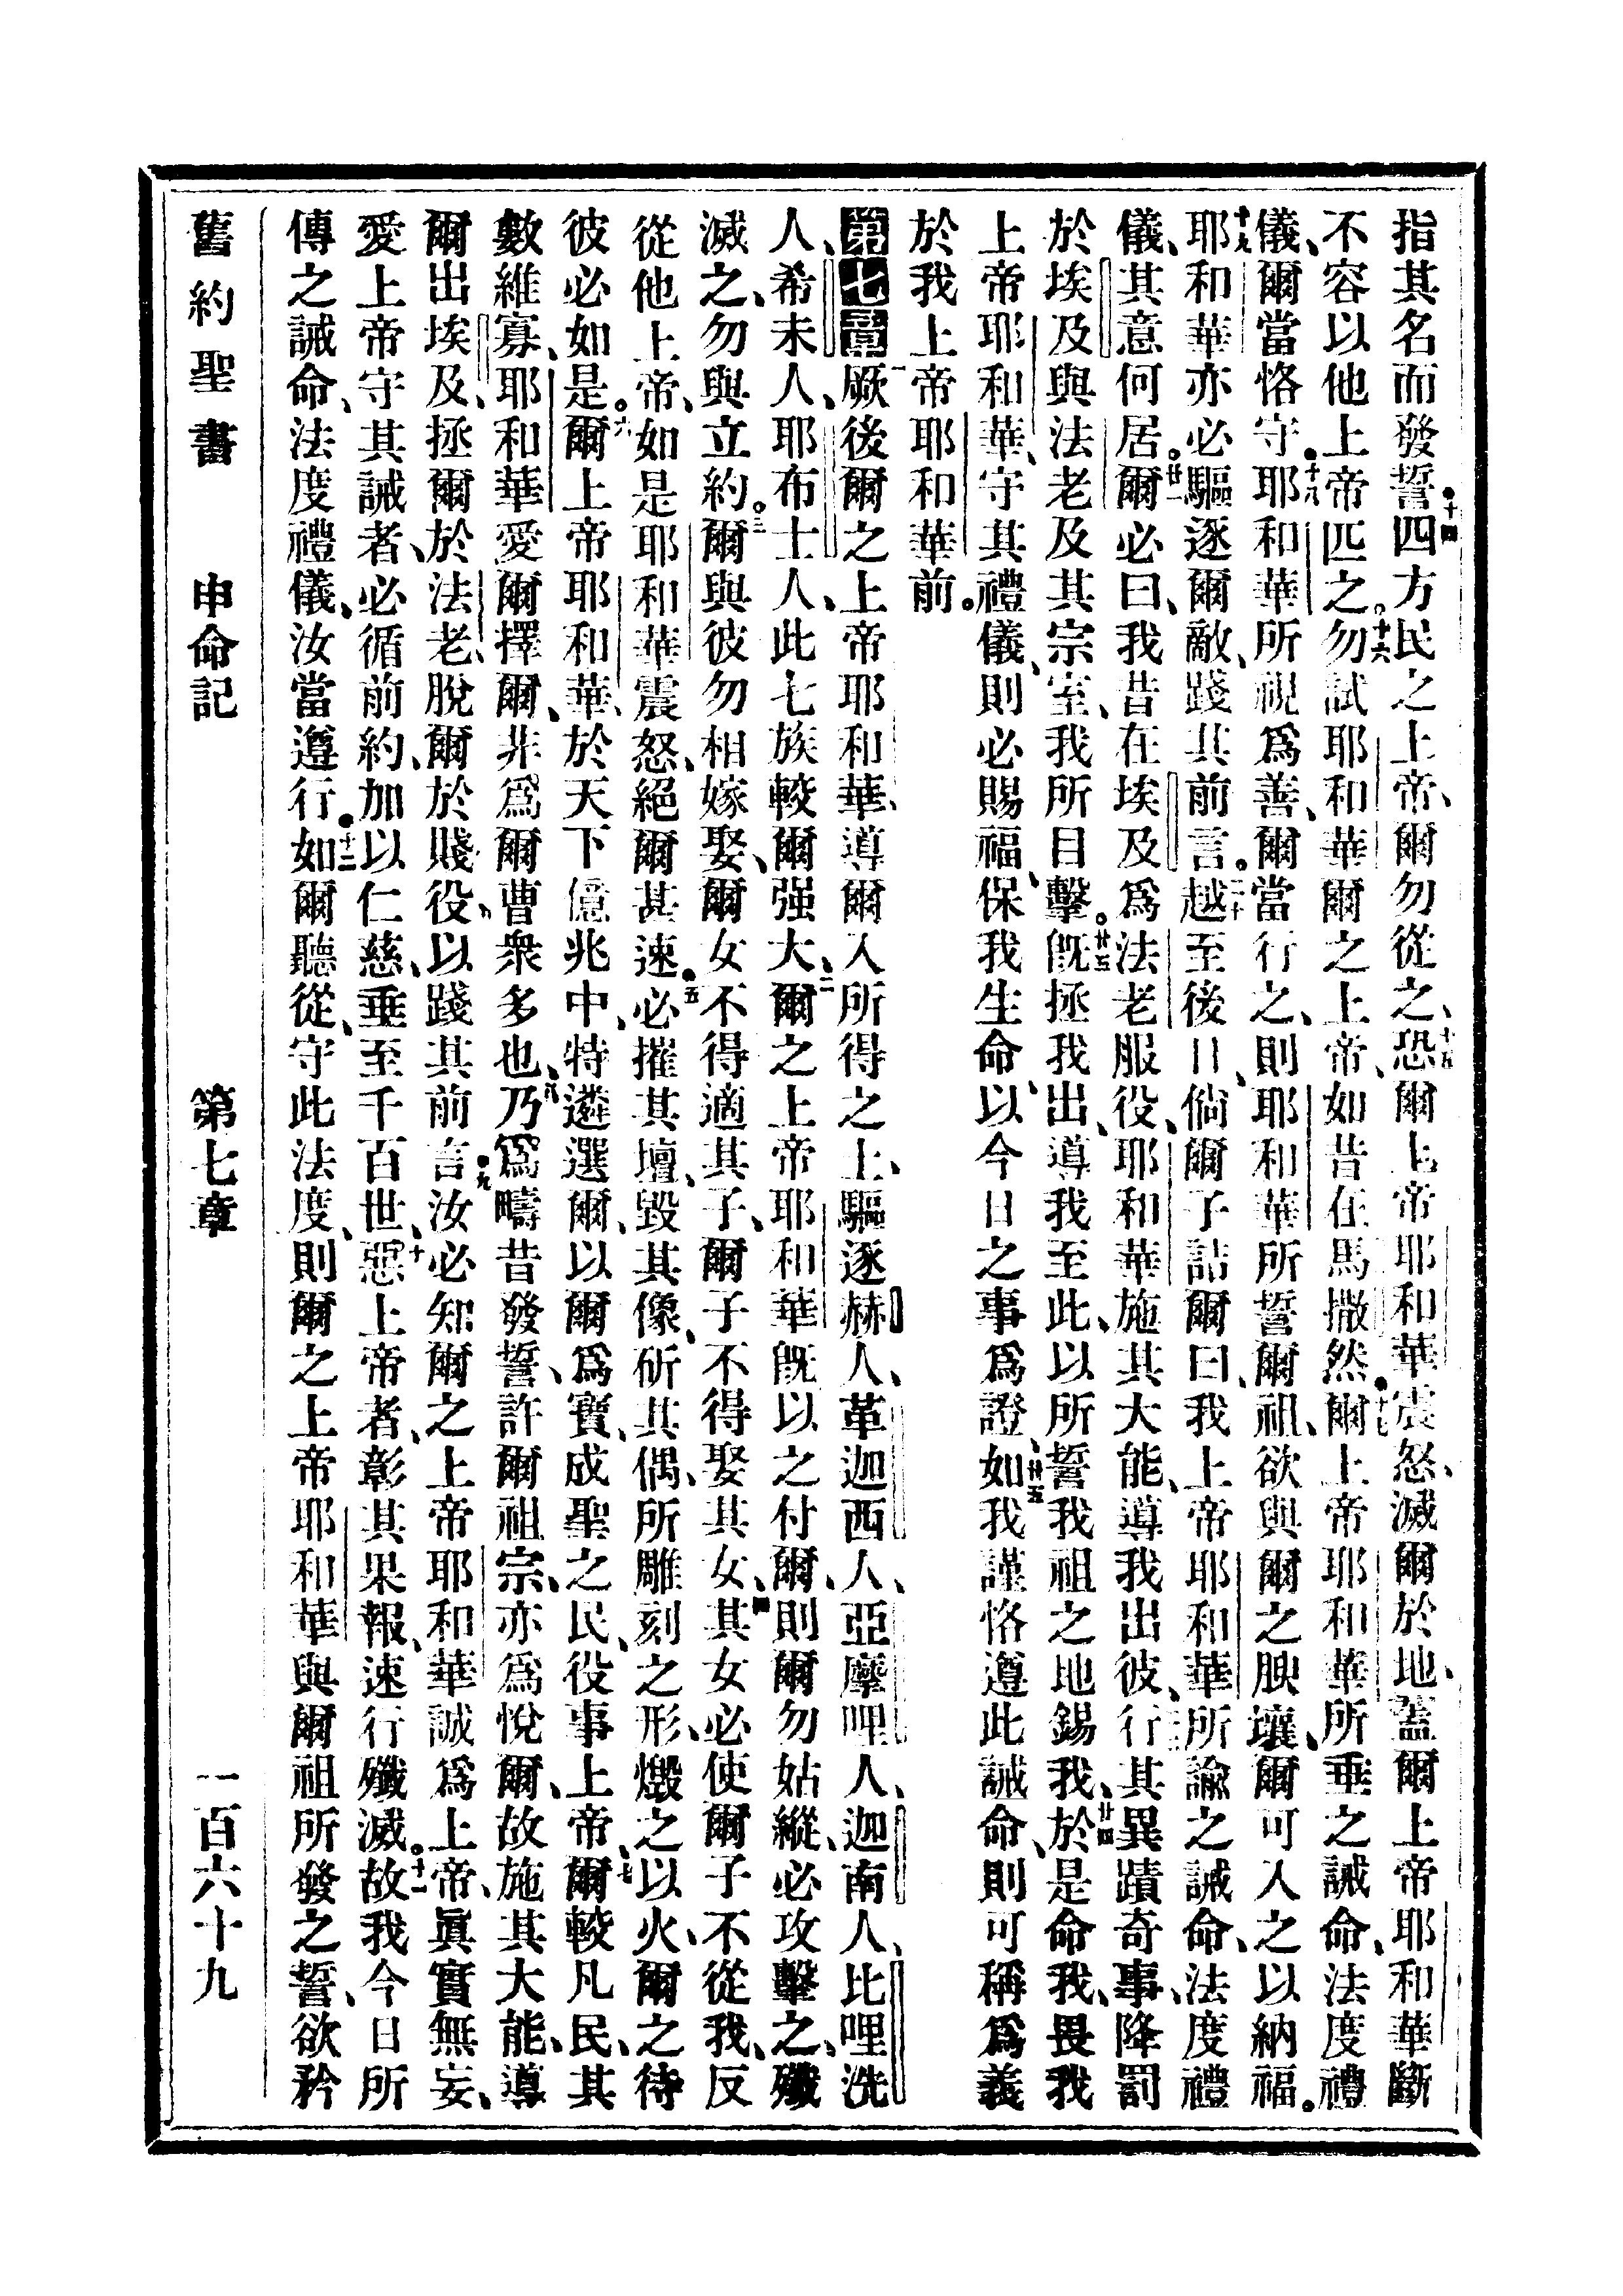 指其名而發誓。十四四方民之上帝、爾勿從之、十五恐爾上帝耶和華震怒、滅爾於地、蓋爾上帝耶和華斷
不容以他上帝匹之。十六勿試耶和華爾之上帝、如昔在馬撒然。十七爾上帝耶和華所垂之誡命、法度禮
儀、爾當恪守。十八耶和華所視爲善、爾當行之、則耶和華所誓爾祖、欲與爾之腴壤、爾可入之以納福。
十九耶和華亦必驅逐爾敵、踐其前言。二十越至後日、倘爾子詰爾曰、我上帝耶和華所諭之誡命、法度禮
儀、其意何居。廿一爾必曰、我昔在埃及爲法老服役、耶和華施其大能、導我出彼、行其異蹟奇事、降罰
於埃及與法老及其宗室、我所目擊。廿三旣拯我出、導我至此、以所誓我祖之地錫我、廿四於是命我、畏我
上帝耶和華、守其禮儀、則必賜福、保我生命、以今日之事爲證、廿五如我謹恪遵此誡命、則可稱爲義
於我上帝耶和華前。
第七章 一厥後爾之上帝耶和華、導爾入所得之土、驅逐赫人、革迦西人、亞摩哩人、迦南人、比哩洗
人、希未人、耶布士人、此七族較爾强大、二爾之上帝耶和華旣以之付爾、則爾勿姑縱、必攻擊之、殲
滅之、勿與立約。三爾與彼勿相嫁娶、爾女不得適其子、爾子不得娶其女、四其女必使爾子不從我、反
從他上帝、如是耶和華震怒、絕爾甚速。五必摧其壇、毀其像、斫其偶、所雕刻之形、燬之以火、爾之待
彼必如是。六爾上帝耶和華、於天下億兆中、特遴選爾、以爾爲寶、成聖之民、役事上帝、七爾較凡民、其
數維寡、耶和華愛爾擇爾、非爲爾曹衆多也、八乃爲疇昔發誓、許爾祖宗、亦爲悅爾、故施其大能、導
爾出埃及、拯爾於法老、脫爾於賤役、以踐其前言。九汝必知爾之上帝耶和華誠爲上帝、眞實無妄、
愛上帝守其誡者、必循前約、加以仁慈、垂至千百世、十惡上帝者、彰其果報、速行殲滅。十一故我今日所
傳之誡命、法度禮儀、汝當遵行。十二如爾聽從、守此法度、則爾之上帝耶和華與爾祖所發之誓、欲矜
舊約聖書　申命記　第七章　一百六十九